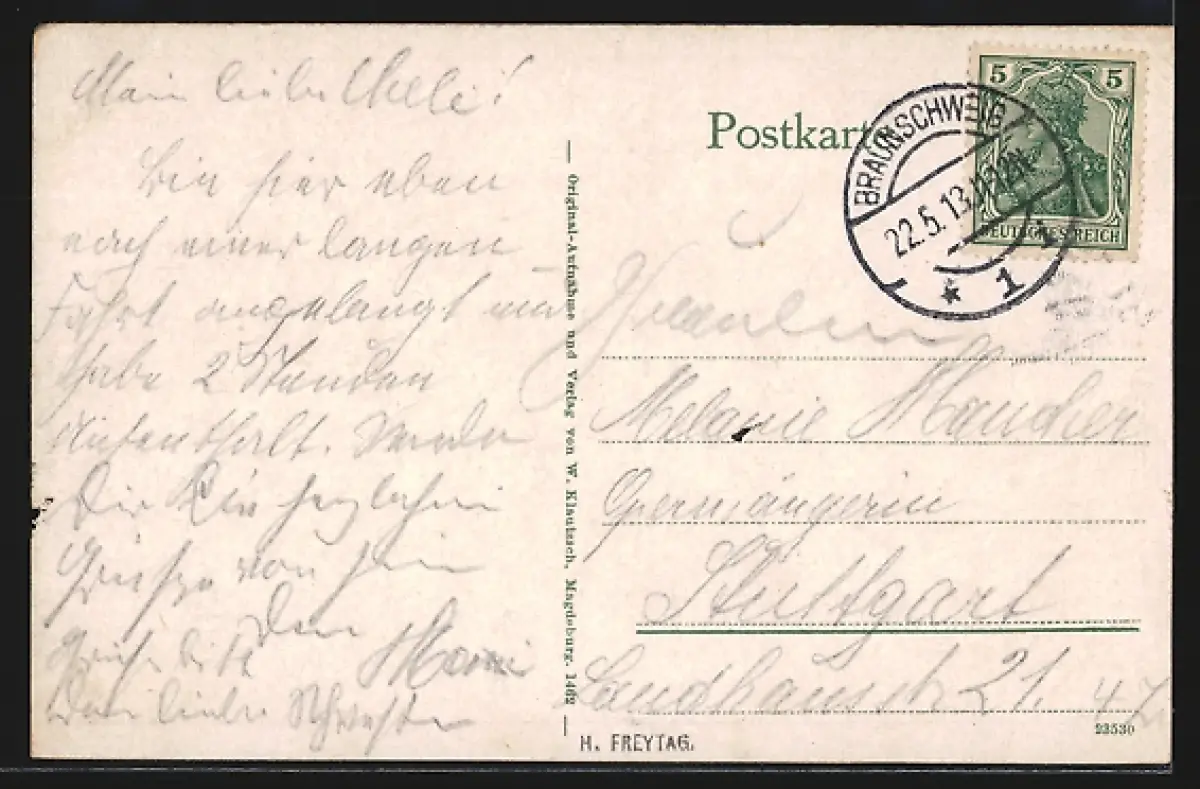 Mein liebe Meli!
Bin hier eben
nach einer langen
Fahrt angelangt und
habe 2 Stunden
Aufenthalt. Sende
Dir die herzlichsten
Grüsse von hier
Dein
Grüsse bitte
Deine liebe Schwester
— Original-Aufnahme und Verlag von W. Klautzsch, Magdeburg. 1462 —
Postkarte
5 5
DEUTSCHES REICH
BRAUNSCHWEIG
22.5.13.11-12N.
* 1 i
Fräulein
Melanie
Opernsängerin
Stuttgart
Landhausstr 21.
23530
H. FREYTAG.